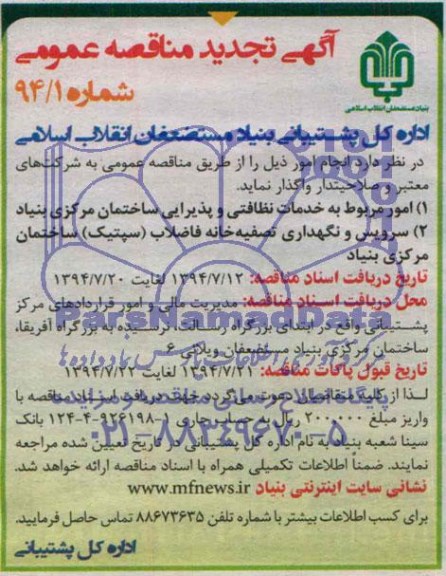 آگهی تجدید مناقصه عمومی
شماره ۹۴/۱
بنیاد مستضعفان انقلاب اسلامی
اداره کل پشتیبانی بنیاد مستضعفان انقلاب اسلامی
در نظر دارد انجام امور ذیل را از طریق مناقصه عمومی به شرکت‌های
معتبر و صلاحیتدار واگذار نماید.
۱) امور مربوط به خدمات نظافتی و پذیرایی ساختمان مرکزی بنیاد
۲) سرویس و نگهداری تصفیه‌خانه فاضلاب (سپتیک) ساختمان
مرکزی بنیاد
تاریخ دریافت اسناد مناقصه: ۱۳۹۴/۷/۱۲ لغایت ۱۳۹۴/۷/۲۰
محل دریافت اسناد مناقصه: مدیریت مالی و امور قراردادهای مرکز
پشتیبانی واقع در ابتدای بزرگراه رسالت، نرسیده به بزرگراه آفریقا،
ساختمان مرکزی بنیاد مستضعفان ویلائی ۶
تاریخ قبول پاکات مناقصه: ۱۳۹۴/۷/۲۱ لغایت ۱۳۹۴/۷/۲۲
لذا از کلیه متقاضیان دعوت می‌گردد جهت دریافت اسناد مناقصه با
واریز مبلغ ۲۰۰۰۰۰ ریال به حساب جاری ۱-۹۲۶۱۹۸-۴-۱۲۴ بانک
سینا شعبه بنیاد به نام اداره کل پشتیبانی در تاریخ تعیین شده مراجعه
نمایند. ضمناً اطلاعات تکمیلی همراه با اسناد مناقصه ارائه خواهد شد.
نشانی سایت اینترنتی بنیاد www.mfnews.ir
برای کسب اطلاعات بیشتر با شماره تلفن ۸۸۶۷۳۶۳۵ تماس حاصل فرمایید.
اداره کل پشتیبانی
ParsNamadData
۰۲۱-۸۸۳۴۹۶۷۰-۵